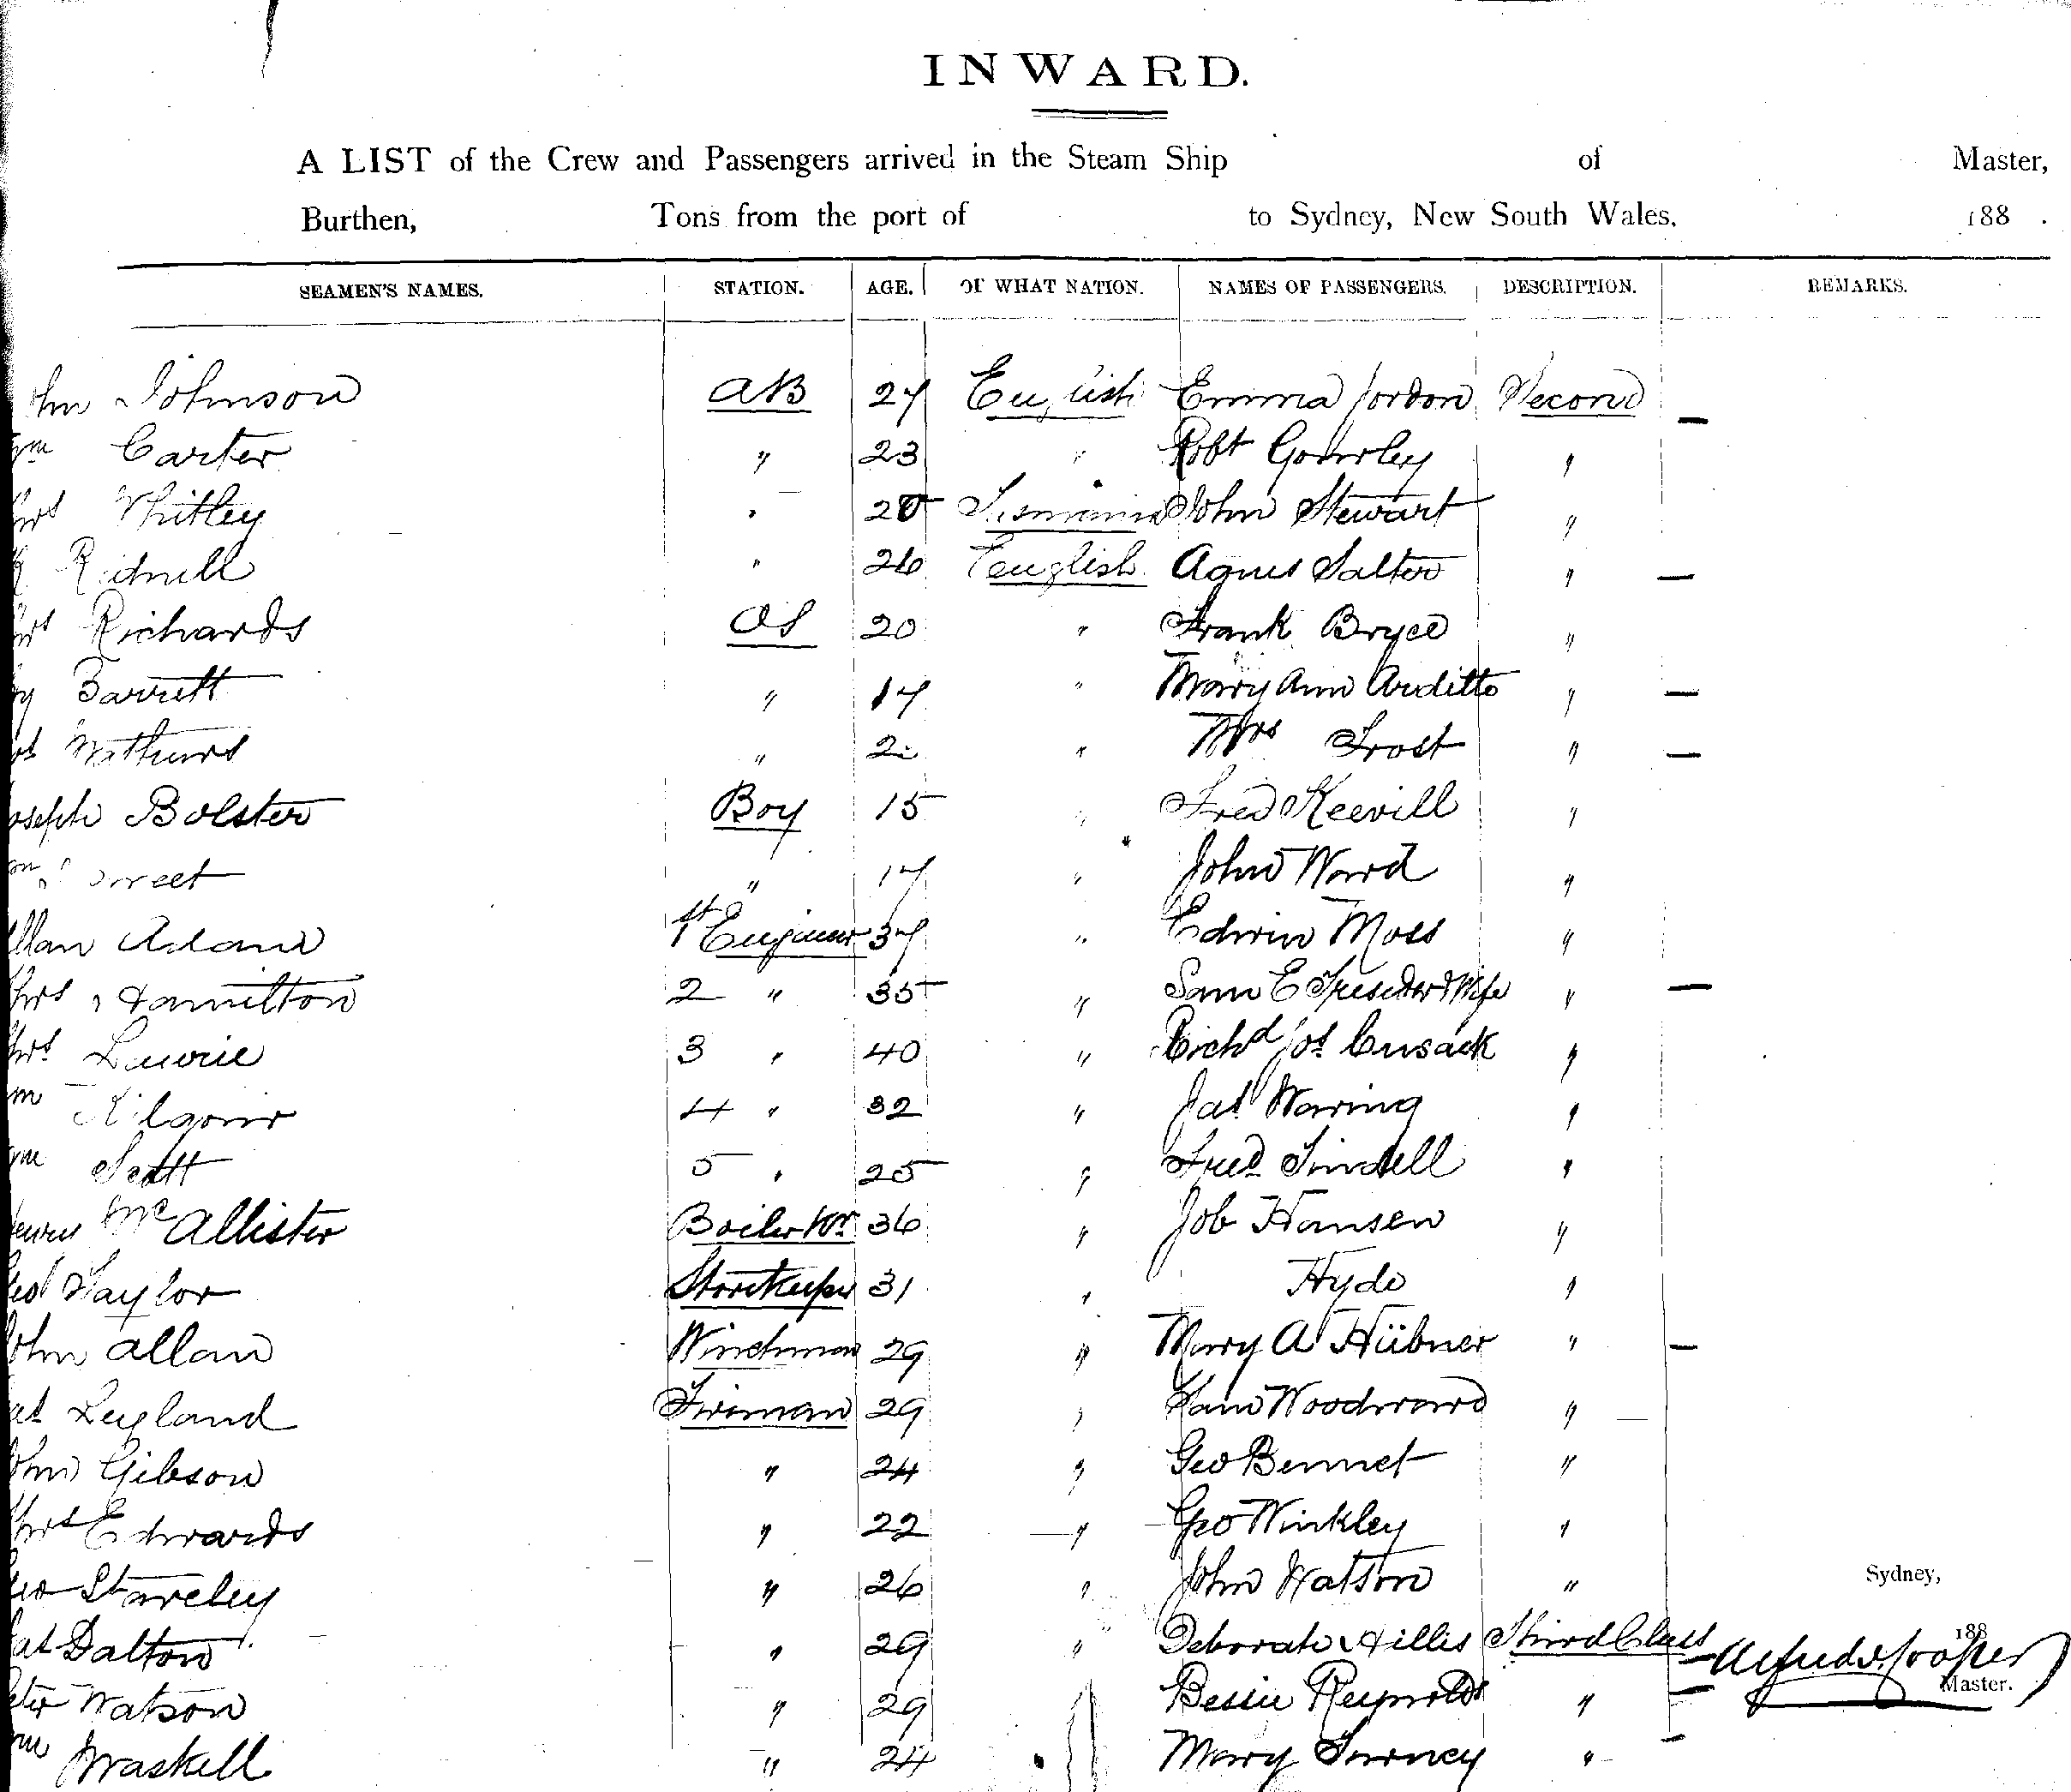 INWARD.
A LIST of the Crew and Passengers arrived in the Steam Ship of Master,
Burthen, Tons from the port of to Sydney, New South Wales, 188 .
SEAMEN'S NAMES. STATION. AGE. OF WHAT NATION. NAMES OF PASSENGERS. DESCRIPTION. REMARKS.
hn Johnson AB 27 English Emma Jordon Second —
m Carter " 23 " Robt Gourley "
hos Whitley " 20 Tasmania John Stewart "
Ridnell " 26 English Agnes Salter " —
hos Richards OS 20 " Frank Bryce "
y Barrett " 17 " Mary Ann Arditto " —
Mathews " 2 " Mrs Frost " —
oseph Bolster Boy 15 " Fred Keevill "
m Street " 17 " John Ward "
llan Adam 1st Engineer 37 " Edwin Moss "
hos Hamilton 2 " 35 " Sam E Treseder & Wife " —
hos Lawrie 3 " 40 " Richd Jos Cusack "
m Kilgour 4 " 32 " Jas Waring "
m Scott 5 " 25 " Fred Tindell "
enry McAllister Boiler Kr 36 " Job Hansen "
eo Taylor Storekeeper 31 " Hyde "
ohn Allan Winchman 29 " Mary A Hübner " —
as Leyland Fireman 29 " Sam Woodward "
ohn Gibson " 24 " Geo Bennet "
hos Edwards " 22 " Geo Winkley "
eo Staveley " 26 " John Watson " Sydney,
at Dalton " 29 " Deborah Hillis Third Class — 188
Peter Watson " 29 Bessie Reynolds " — Master.
m Maskell " 24 Mary Turney " —